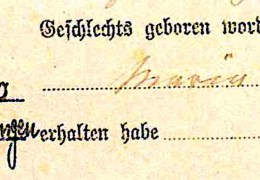 Geschlechts geboren word
Maria
erhalten habe